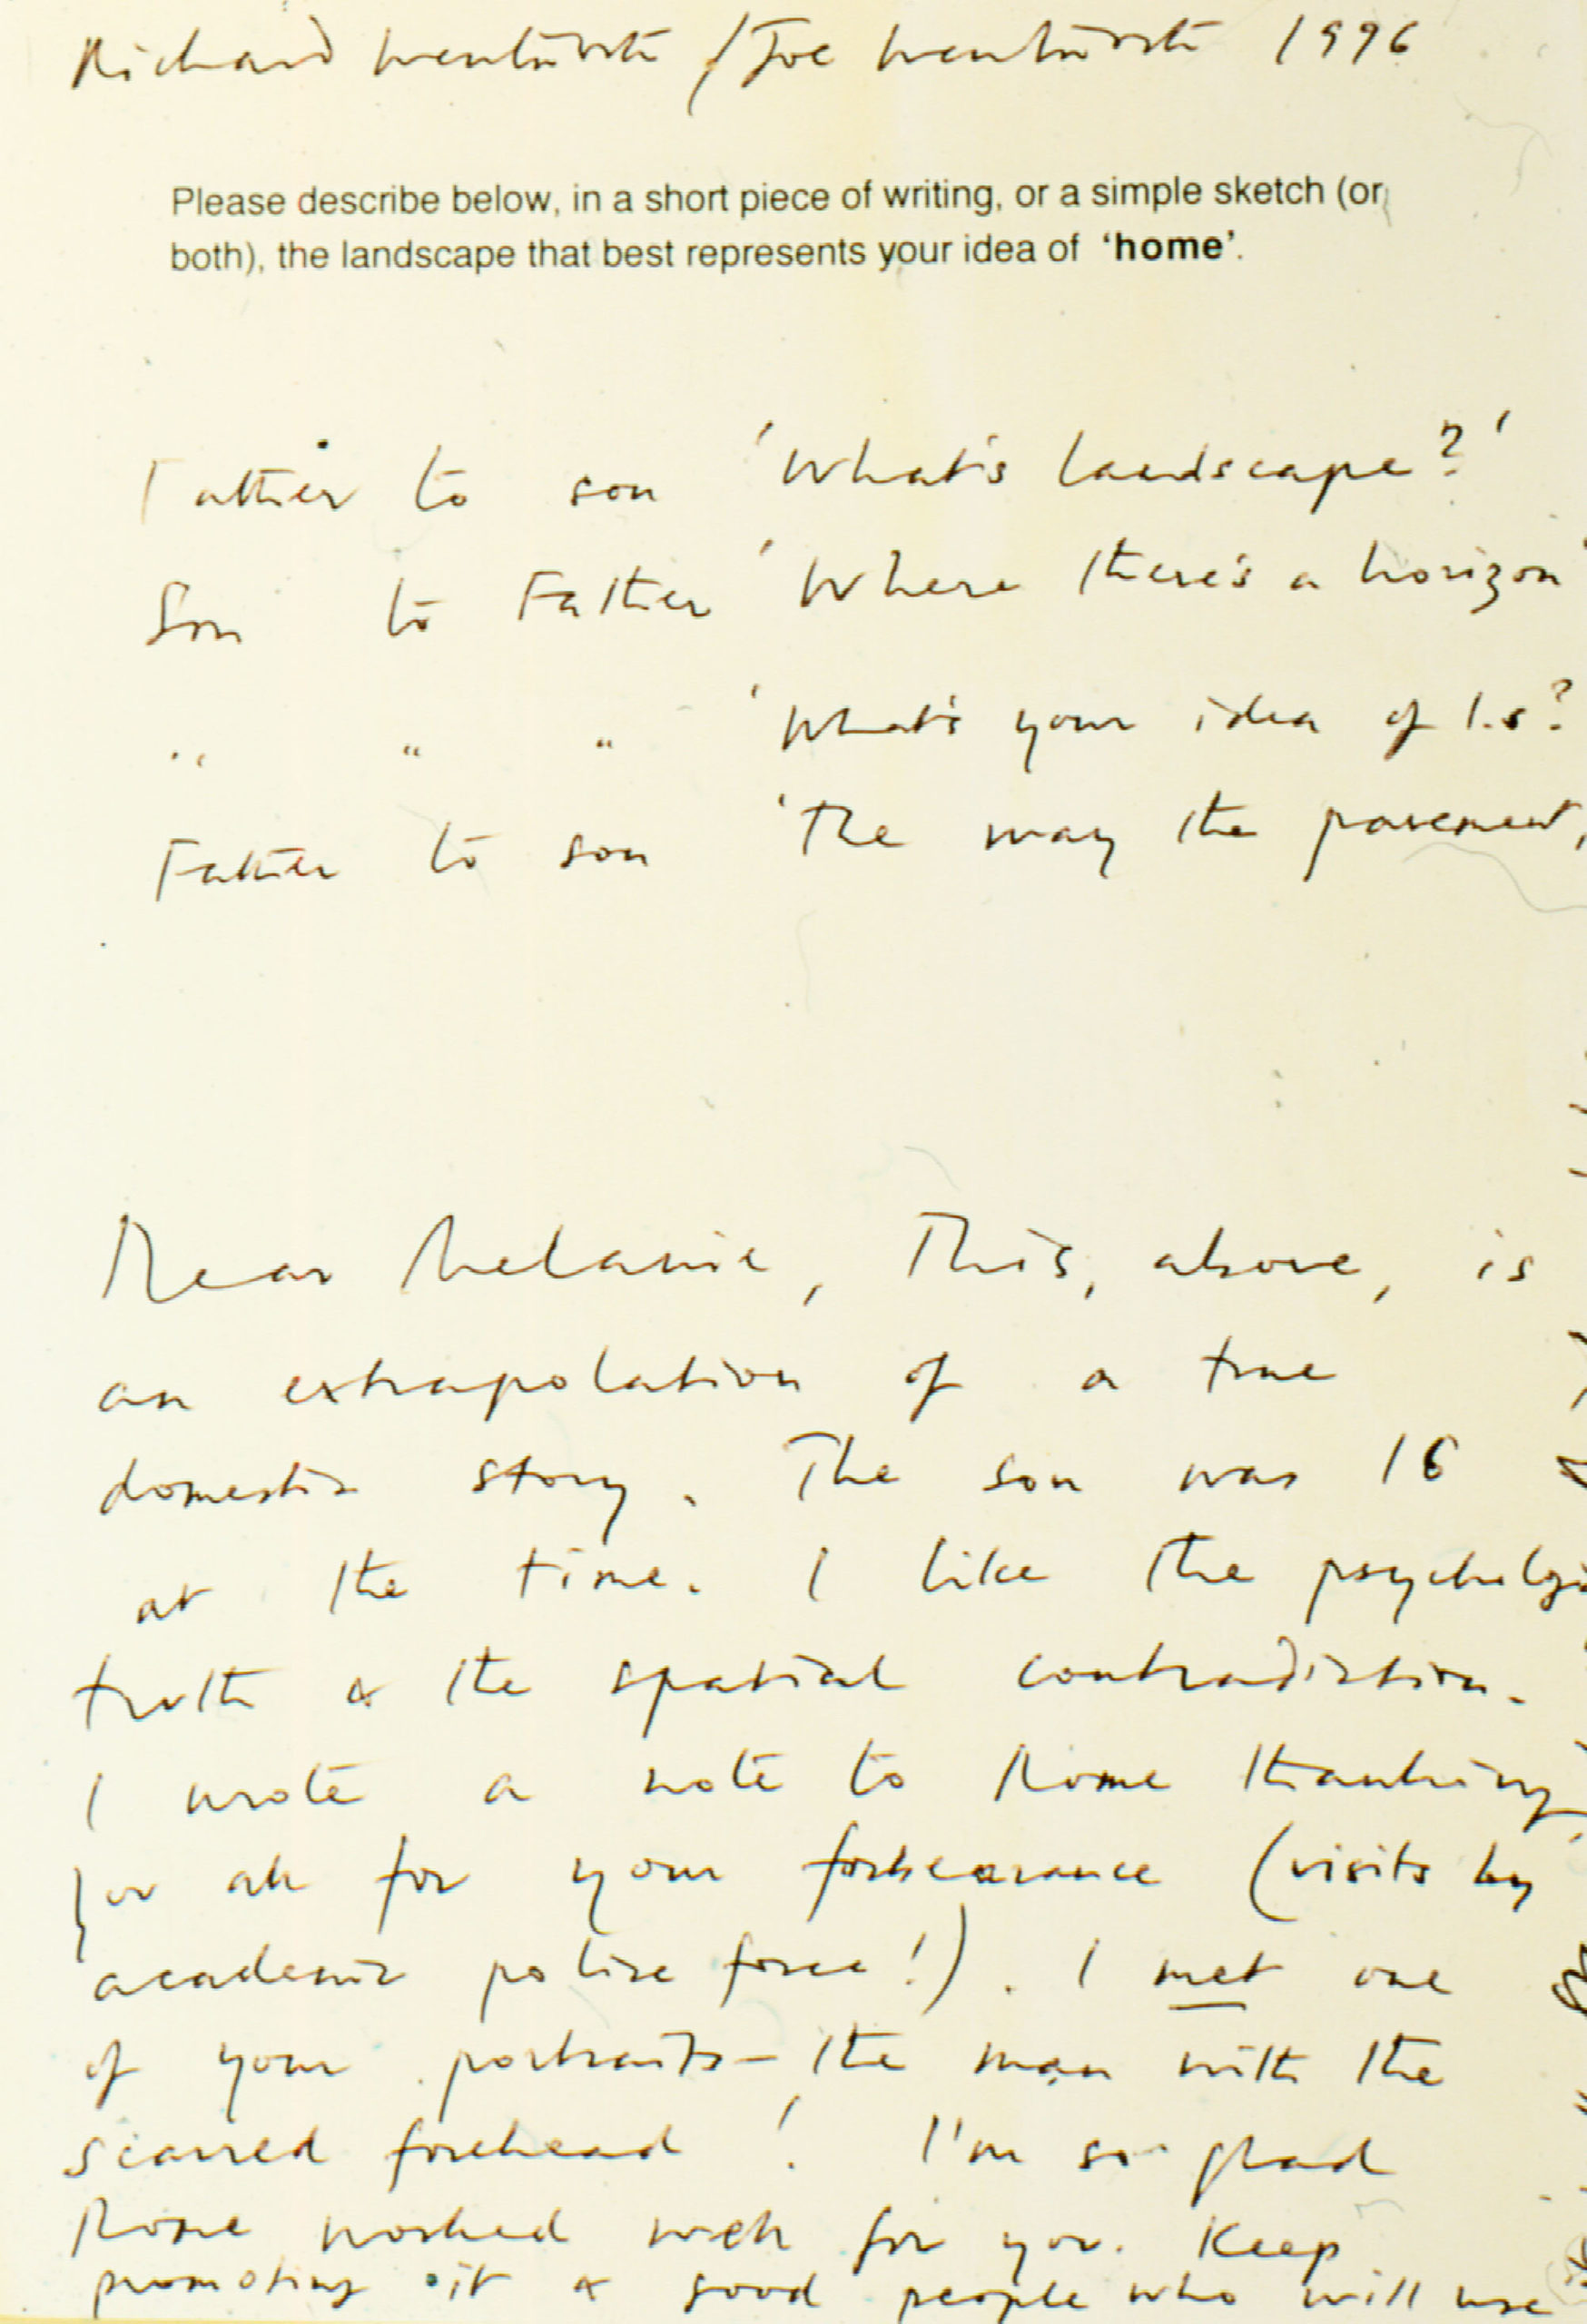 Richard Wentworth / Joe Wentworth 1996
Please describe below, in a short piece of writing, or a simple sketch (or
both), the landscape that best represents your idea of 'home'.
Father to son 'What's landscape?'
Son to Father 'Where there's a horizon'
" " " 'What's your idea of l.s?
Father to son 'The way the pavement,
Dear Melanie, This, above, is
an extrapolation of a true
domestic story. The son was 16
at the time. I like the psycholgi
truth & the spatial contradiction.
I wrote a note to Rome thanking
all for your forbearance (visits by
academic police force!). I met one
of your portraits - the man with the
scarred forehead! I'm so glad
Rome worked well for you. Keep
promoting it & good people who will use